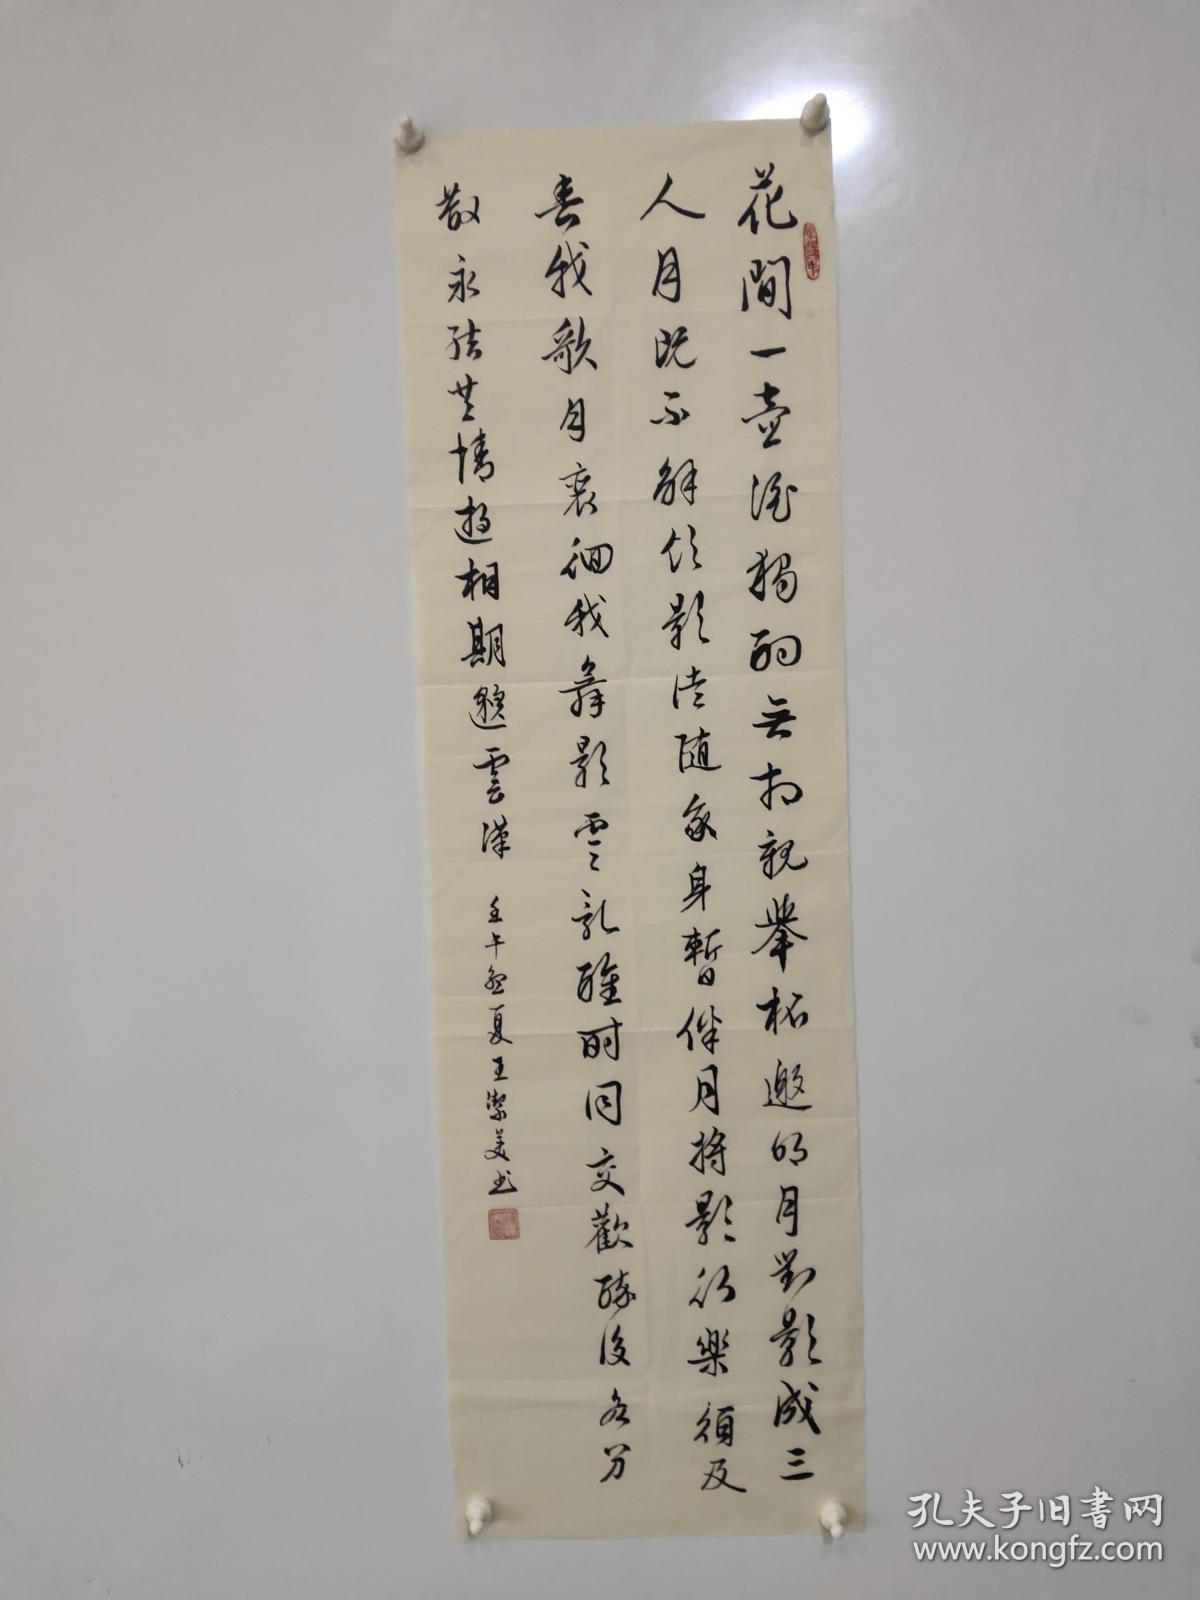 花間一壺酒獨酌無相親舉杯邀明月對影成三
人月既不解飲影徒隨我身暫伴月將影行樂須及
春我歌月裵徊我舞影零亂醒時同交歡醉後各分
散永結無情遊相期邈雲漢
壬午孟夏王潔美书
孔夫子旧書网
www.kongfz.com